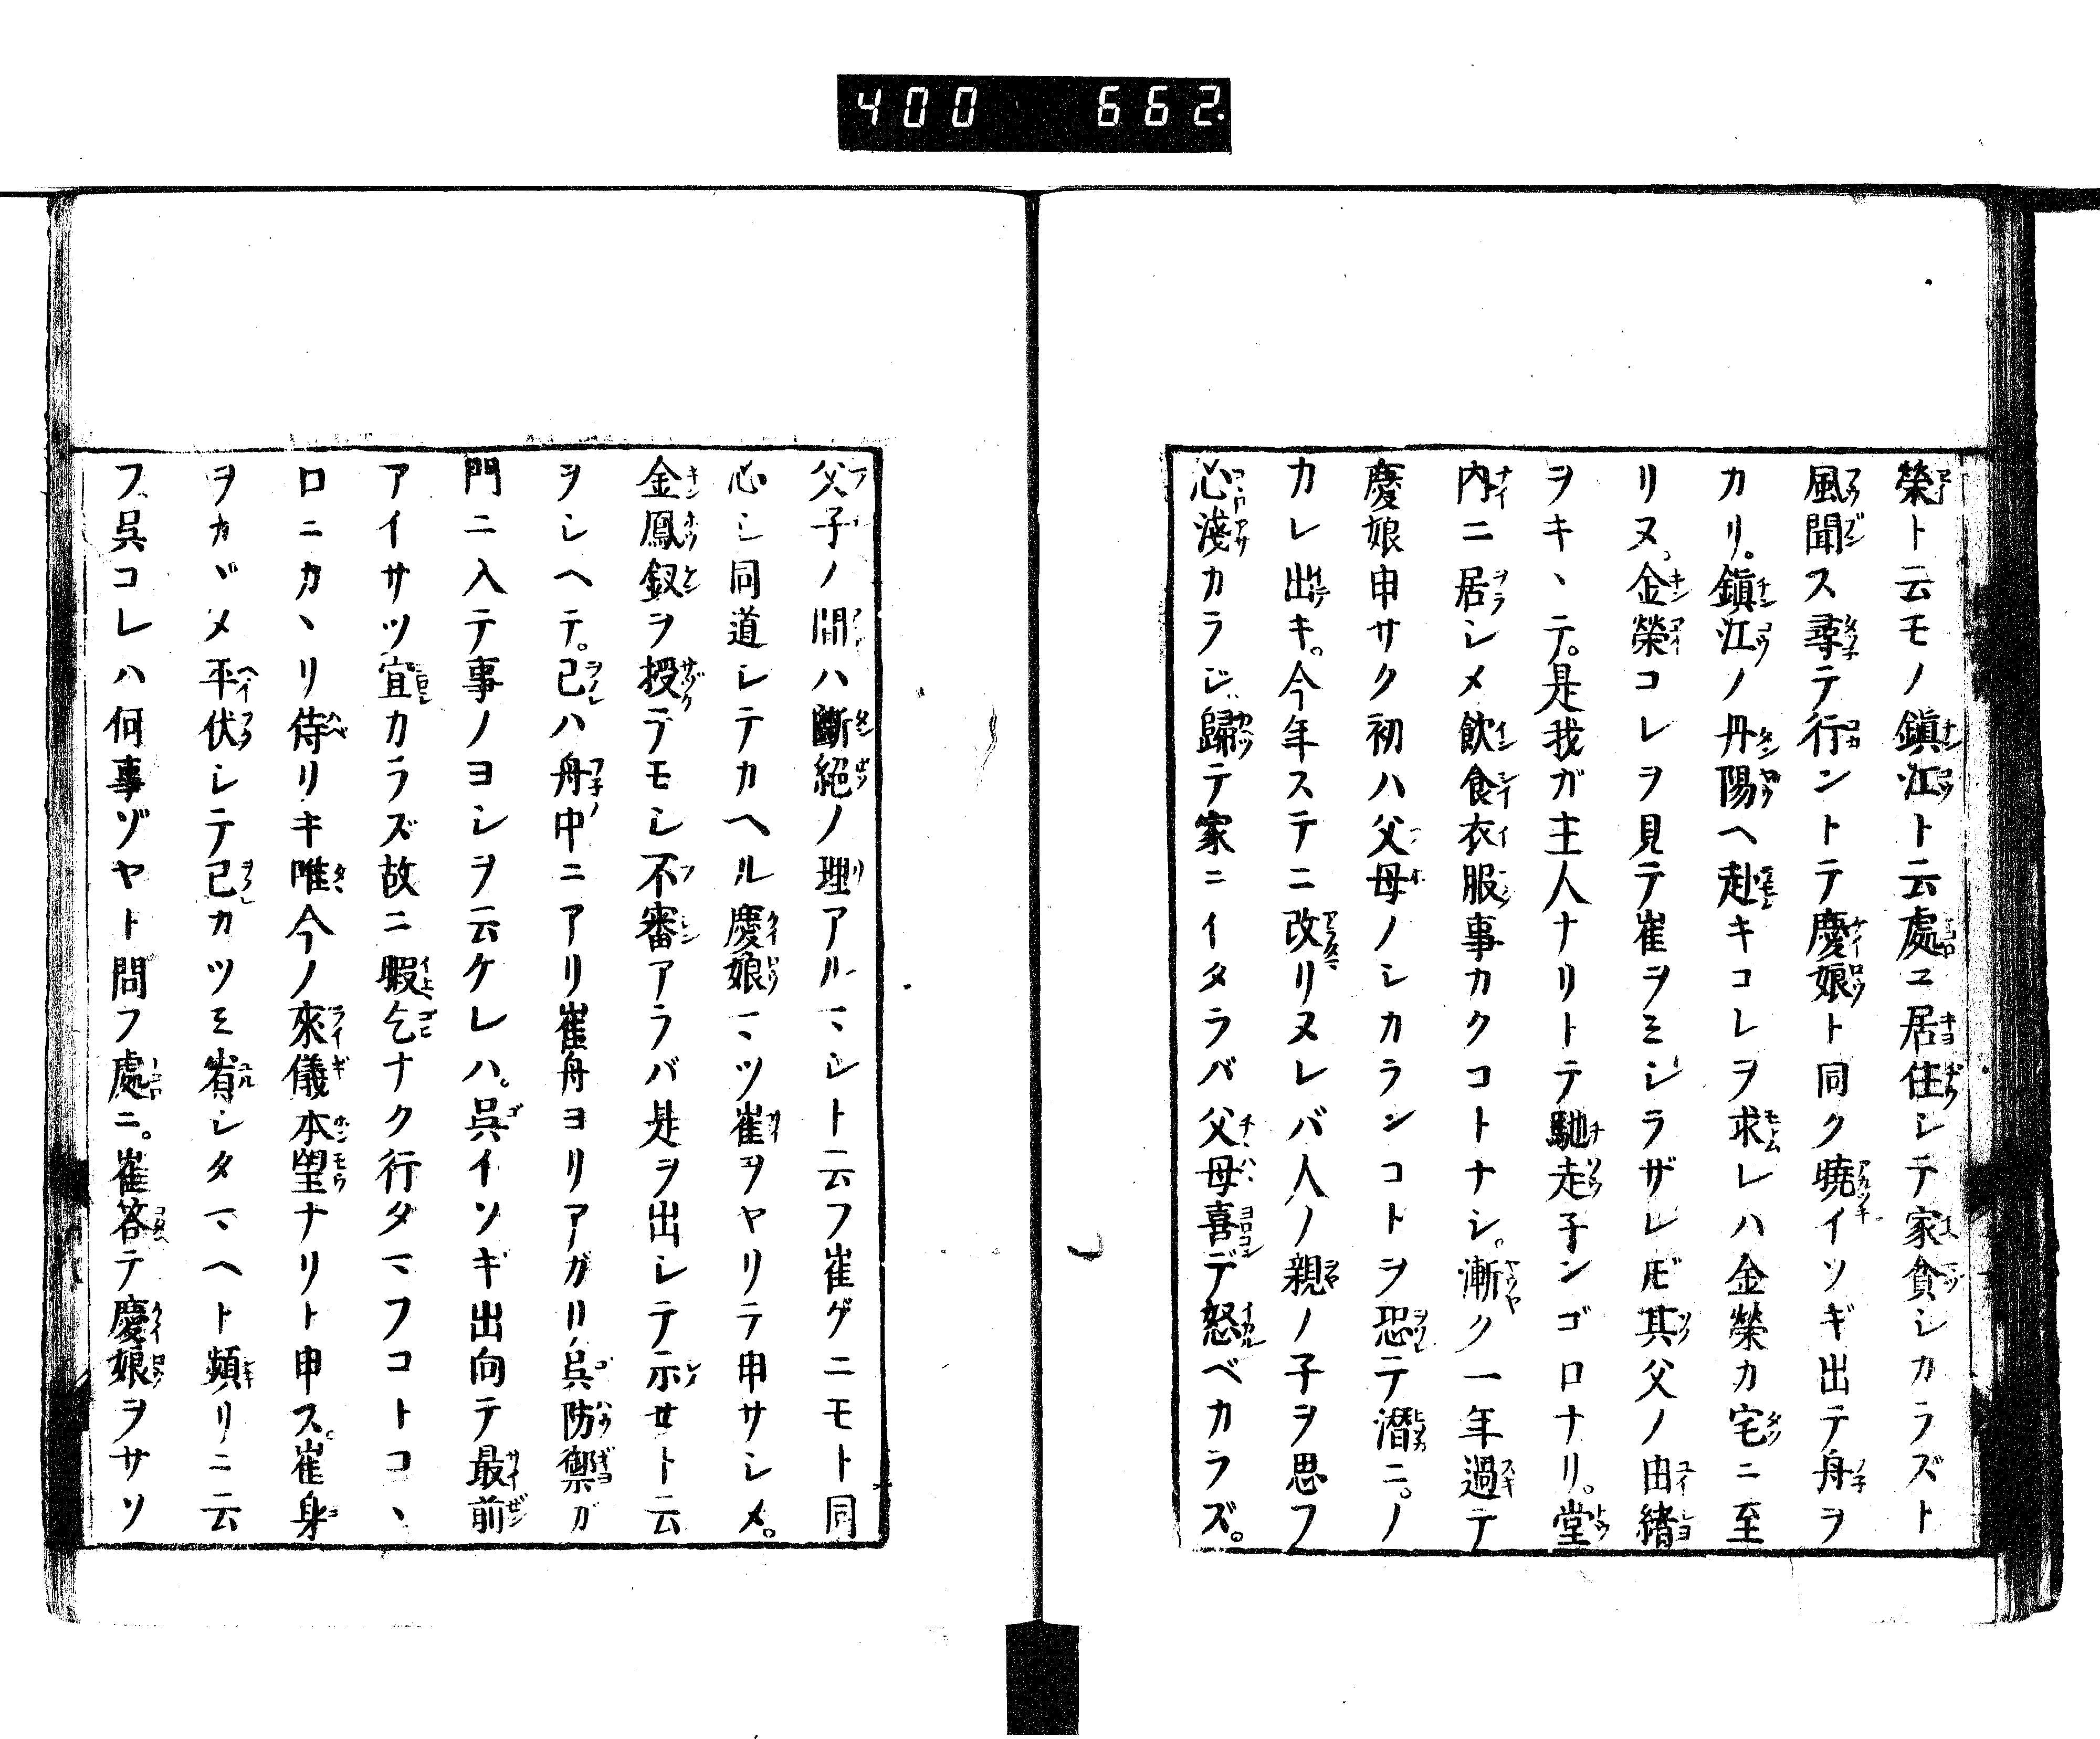 400 662.
榮ト云モノ鎭江ト云處ニ居住シテ家貧シカラズト
風聞ス尋テ行ントテ慶娘ト同ク曉イソギ出テ舟ヲ
カリ。鎭江ノ丹陽ヘ赴キコレヲ求レハ金榮カ宅ニ至
リヌ。金榮コレヲ見テ崔ヲミシラザレ𪜈其父ノ由緒
ヲキヽテ。是我ガ主人ナリトテ馳走子ンゴロナリ。堂
内ニ居シメ飲食衣服事カクコトナシ。漸ク一年過テ
慶娘申サク初ハ父母ノシカランコトヲ恐テ潛ニ。ノ
カレ出キ。今年ステニ改リヌレバ人ノ親ノ子ヲ思フ
心淺カラジ歸テ家ニイタラバ父母喜デ怒ベカラズ。
父子ノ間ハ斷絕ノ理アルマシト云フ崔ゲニモト同
心シ同道シテカヘル慶娘マツ崔ヲヤリテ申サシメ。
金鳳釵ヲ授デモシ不審アラバ是ヲ出シテ示せト云
ヲシヘテ。己ハ舟中ニアリ崔舟ヨリアガリ吳防禦ガ
門ニ入テ事ノヨシヲ云ケレハ。吳イソギ出向テ最前
アイサツ宜カラズ故ニ暇乞ナク行タマフコトコヽ
ロニカヽリ侍リキ唯今ノ來儀本望ナリト申ス。崔身
ヲカヾメ平伏シテ己カツミ宥シタマヘト頻リニ云
フ吳コレハ何事ゾヤト問フ處ニ。崔答テ慶娘ヲサソ